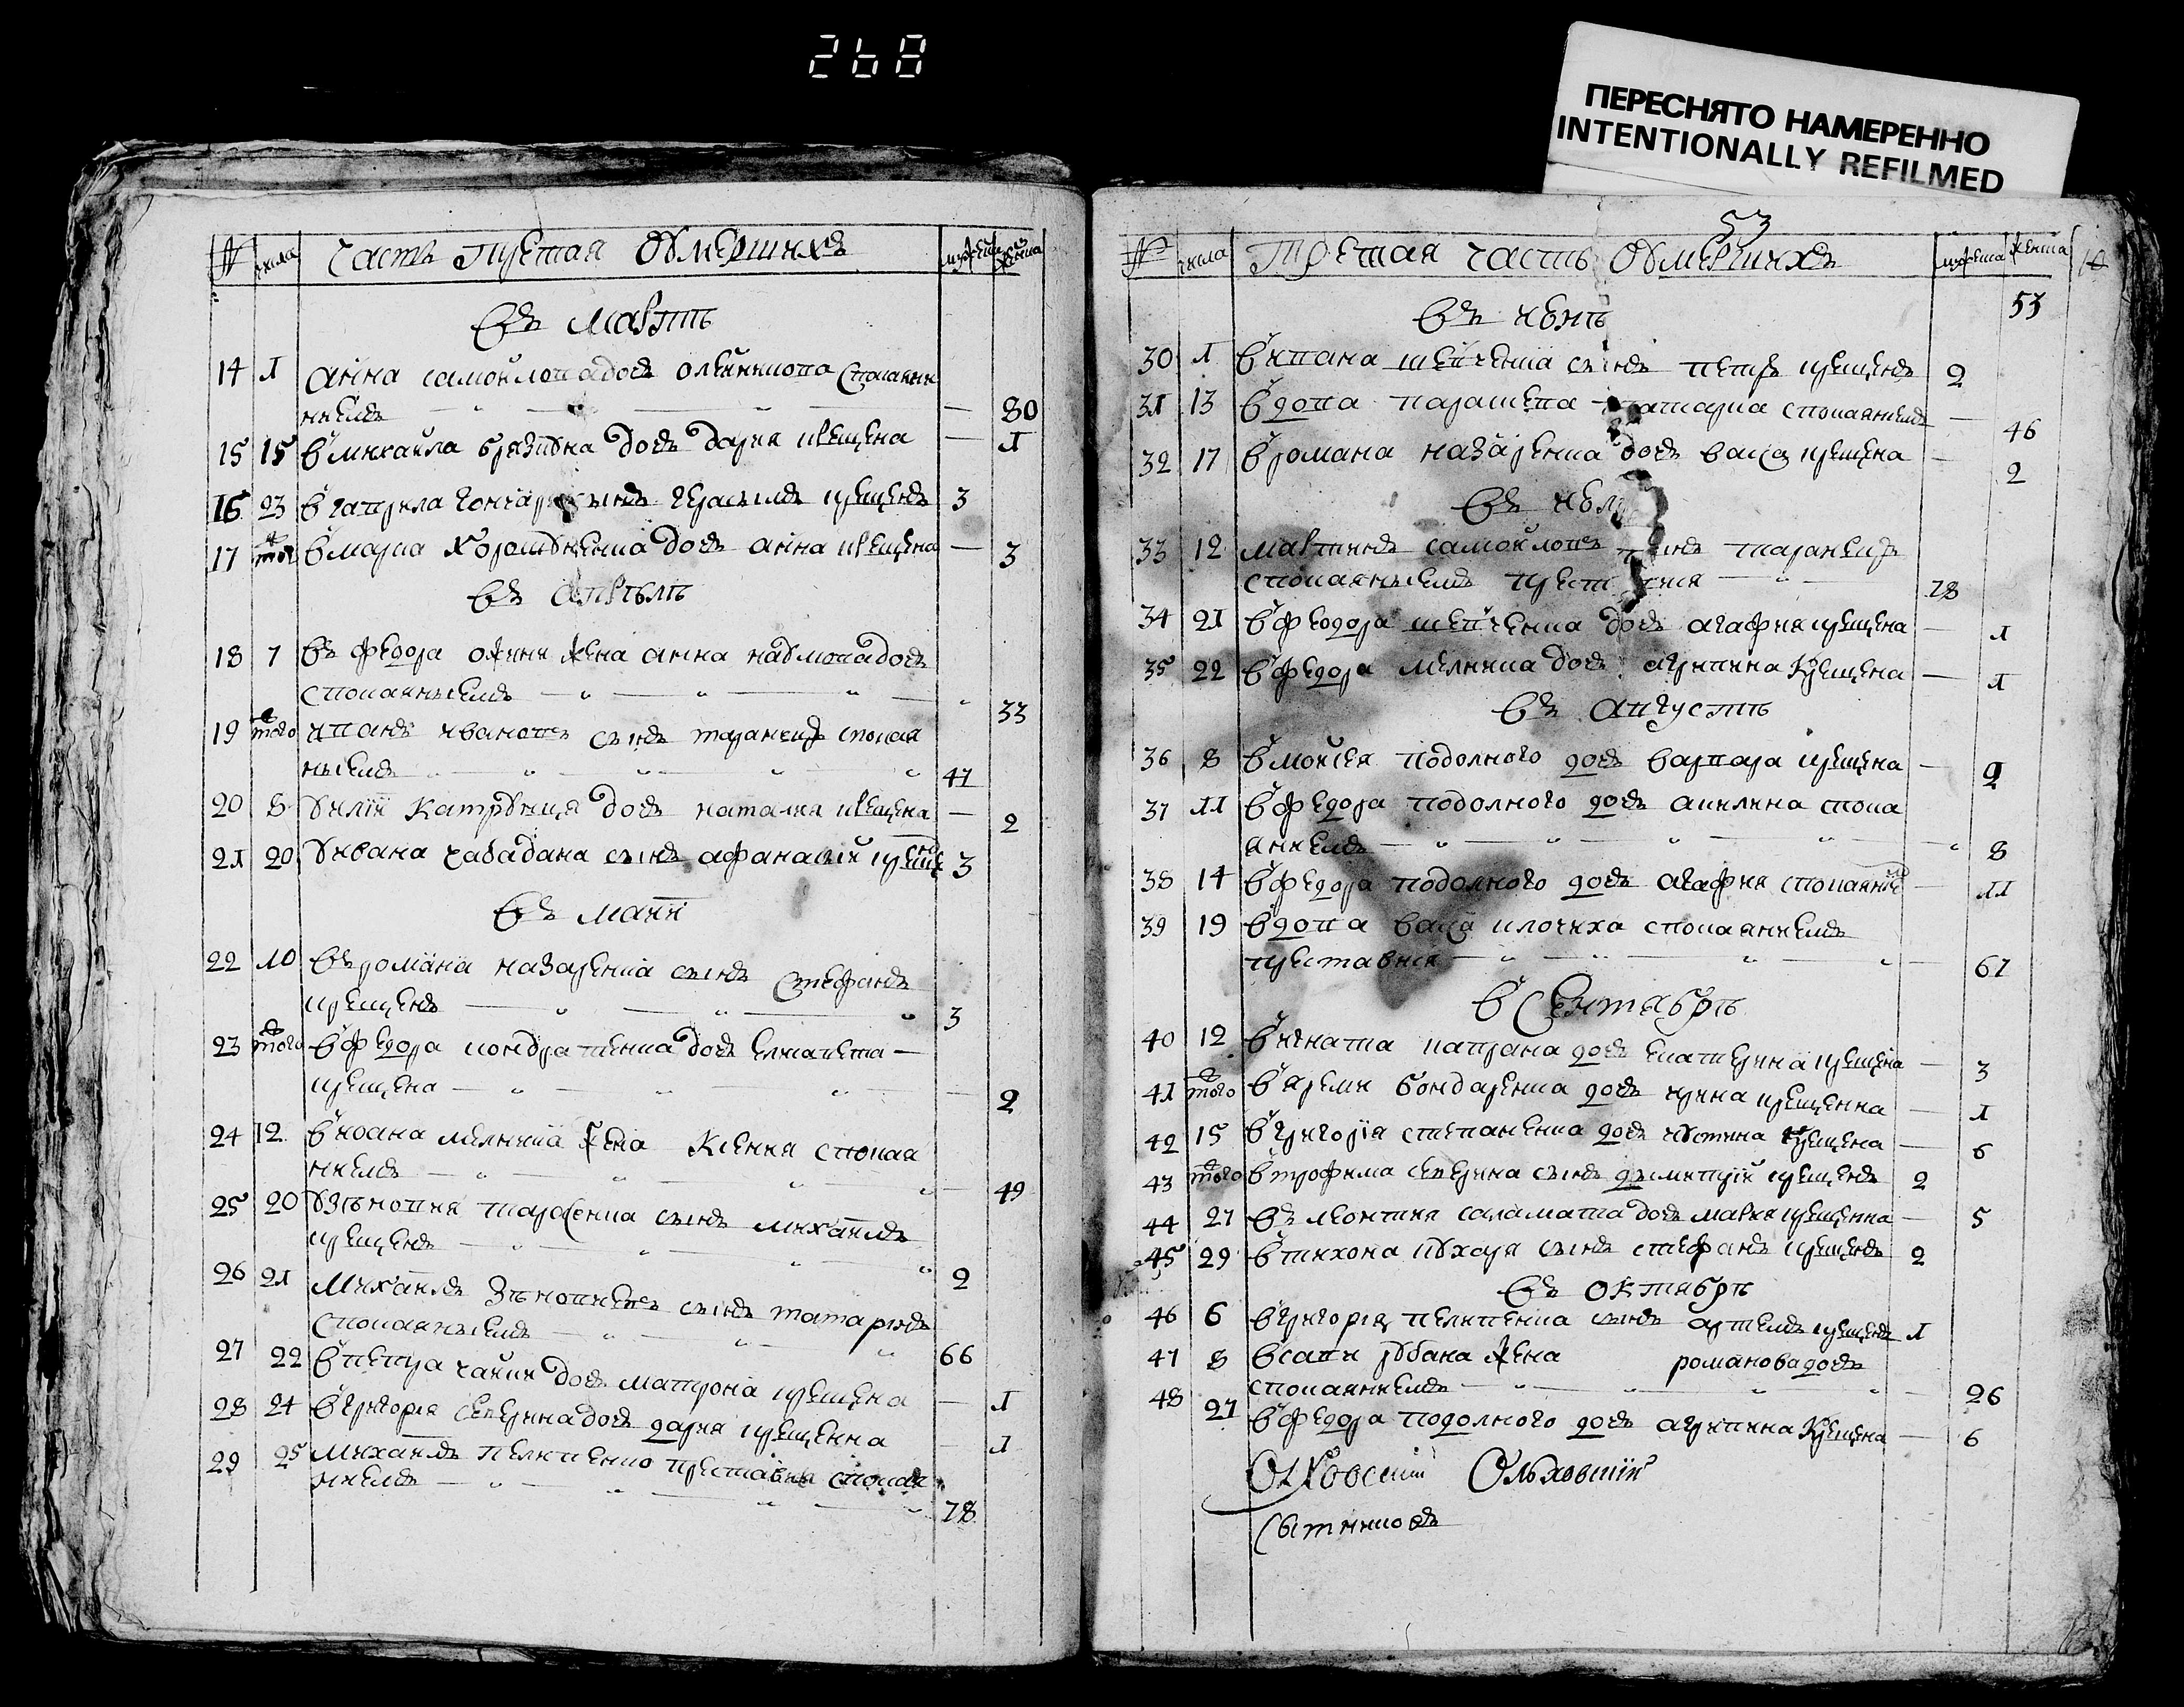 268
ПЕРЕСНЯТО НАМЕРЕННО
INTENTIONALLY REFILMED
№ числа Часть третая Обмершихъ
въ мартѣ
14 1 анна самойлова дочь олейникова спокаяни
ниемъ 80
15 15 в михайла дочь дария крещена 1
16 23 в гаврила гончара сынъ герасимъ крещенъ 3
17 того в марка дочь анна крещена 3
въ апрѣлѣ
18 7 въ федора жена анна дочь
спокаяниемъ 33
19 того иванъ ивановъ сынъ спокая
ниемъ 47
20 8 дочь наталия крещена 2
21 20 у ивана чабадана сынъ афанасий крещенъ 3
въ маии
22 10 въ романа назаренка сынъ стефанъ
крещенъ 3
23 того в федора кондратенка дочь елисавета
крещена 2
24 12 в иоана мелника жена ксения спокая
ниемъ 49
25 20 у зѣновия тарасенка сынъ михаилъ
крещенъ 2
26 21 михаилъ зѣновиевъ сынъ
спокаяниемъ 66
27 22 в петра дочь матрона крещена 1
28 24 в григория северина дочь дария крещенна 1
29 25 михаилъ пелипенко преставися спокая
ниемъ 78
53
№ числа Третая часть Обмерших
53
въ июнѣ
30 1 в ивана шевченка сынъ петръ крещенъ 2
31 13 вдова параскева спокаяниемъ 46
32 17 в романа назаренка дочь васса крещена 2
въ
33 12 мартинъ самойловъ сынъ
спокаяниемъ 78
34 21 в феодора шевченка дочь агафия крещена 1
35 22 в федора мелника дочь агрипина крещена 1
въ августѣ
36 8 в мойсея подолного дочь варвара крещена
37 11 в федора подолного дочь акилина спока
яниемъ 8
38 14 в федора подолного дочь агафия спокаяние 11
39 19 вдова васса клочиха спокаяниемъ
преставися 67
в сентябрѣ
40 12 в игната дочь екатерина крещена 3
41 того в яреми бондаренка дочь ирина крещенна 1
42 15 в григория степаненка дочь иустина крещена 6
43 того в трофима северина сынъ димитрий крещенъ 2
44 27 въ леонтия саламата дочь мария крещенна 5
45 29 в тихона кухаря сынъ стефанъ крещенъ 2
въ октябрѣ
46 6 в григория пелипенка сынъ артемъ крещенъ 1
47 8 в сави жена романова дочь
спокаяниемъ 26
48 27 в федора подолного дочь агрипина крещена 6
Ольховский